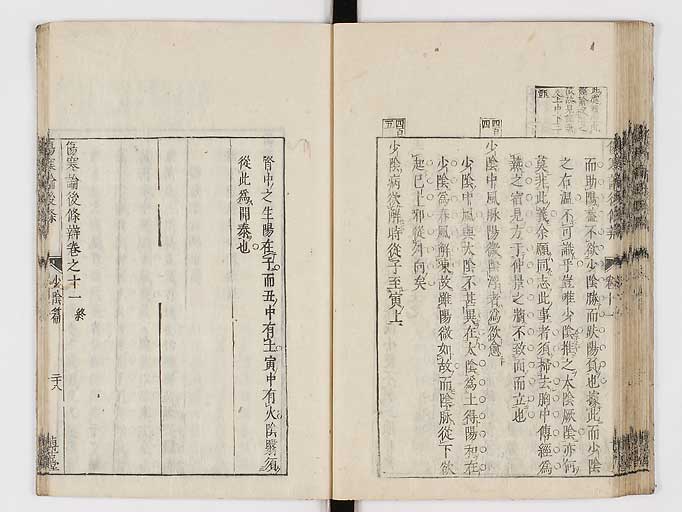 而助陽蓋不欲少陰勝而趺陽負也據此而少陰
之右溫不可識乎豈唯少陰推之太陰厥陰亦何
莫非此義余願同志此事者須掃去胸中傳經爲
熱之宿見方于仲景之牘不致面而立也
少陰中風脉陽微陰浮者爲欲愈
少陰中風與太陰不甚異在太陰爲土得陽和在
少陰爲春風解凍故雖陽微如故而陰脉從下欲
起已上邪從外向矣
少陰病欲解時從子至寅上
四百四
四百五
腎中之生陽在子而丑中有土寅中有火陰翳須
從此爲開泰也
傷寒論後條辨卷之十一 終
傷寒論後條
少陰篇
二十八